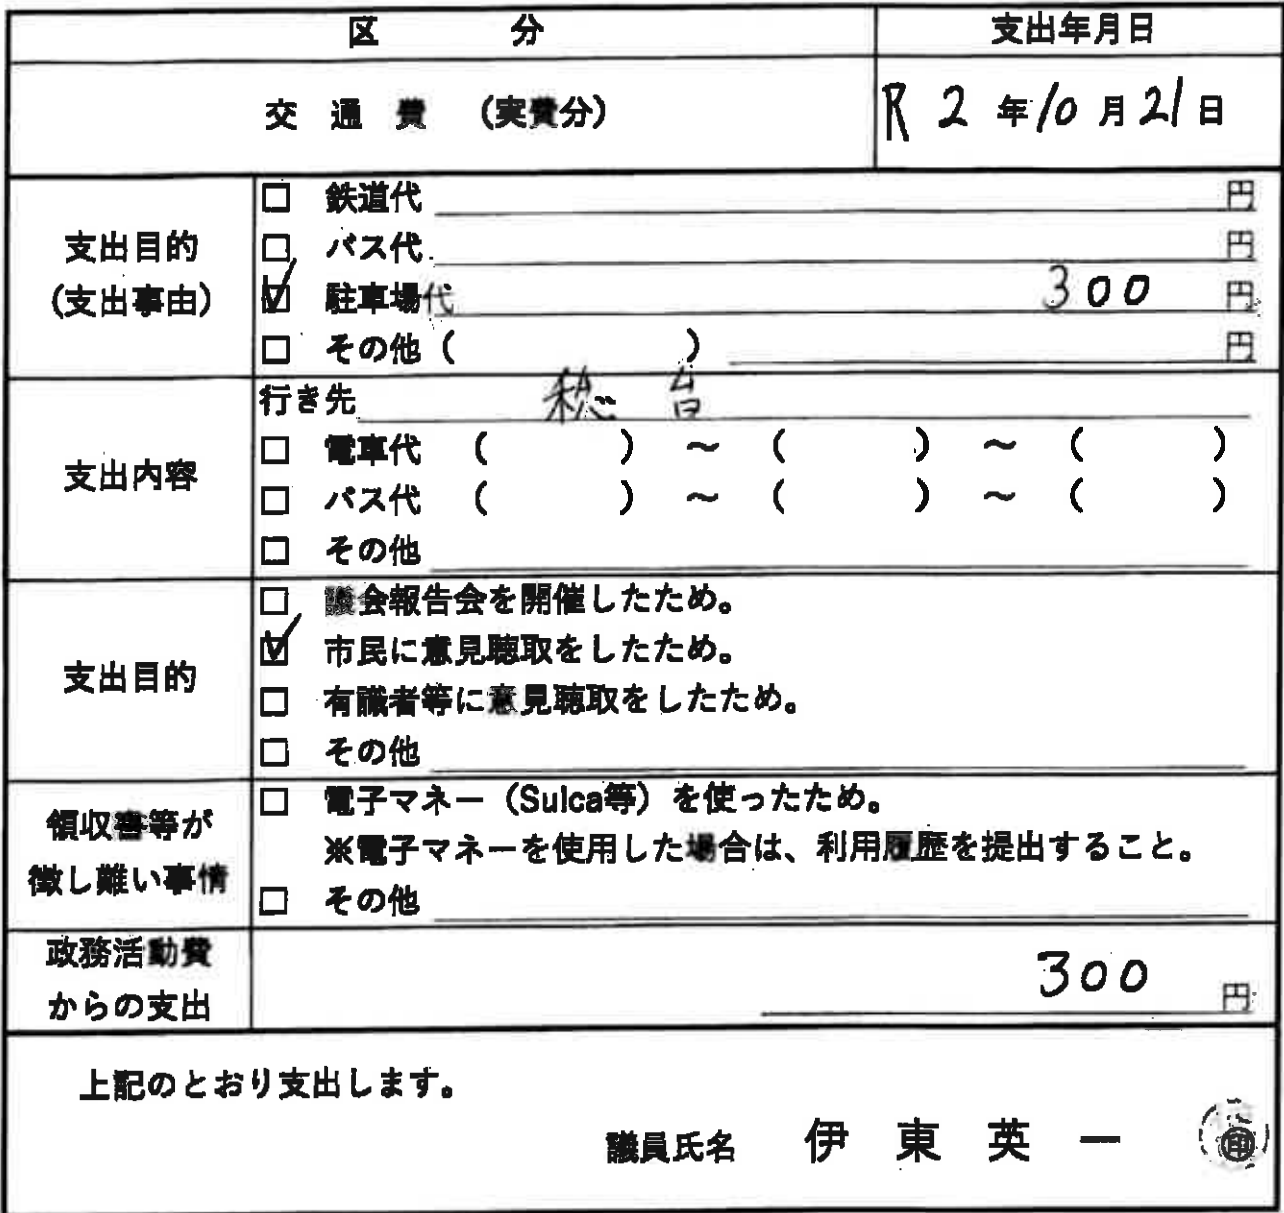 区 分 支出年月日
交 通 費 (実費分) R 2 年 10 月 21 日
支出目的
(支出事由)
□ 鉄道代 円
□ バス代 円
☑ 駐車場代 300 円
□ その他 ( ) 円
支出内容
行き先 稔台
□ 電車代 ( ) ~ ( ) ~ ( )
□ バス代 ( ) ~ ( ) ~ ( )
□ その他
支出目的
□ 議会報告会を開催したため。
☑ 市民に意見聴取をしたため。
□ 有識者等に意見聴取をしたため。
□ その他
領収書等が
徴し難い事情
□ 電子マネー(Suica等)を使ったため。
※電子マネーを使用した場合は、利用履歴を提出すること。
□ その他
政務活動費
からの支出
300 円
上記のとおり支出します。
議員氏名 伊 東 英 一 ㊞